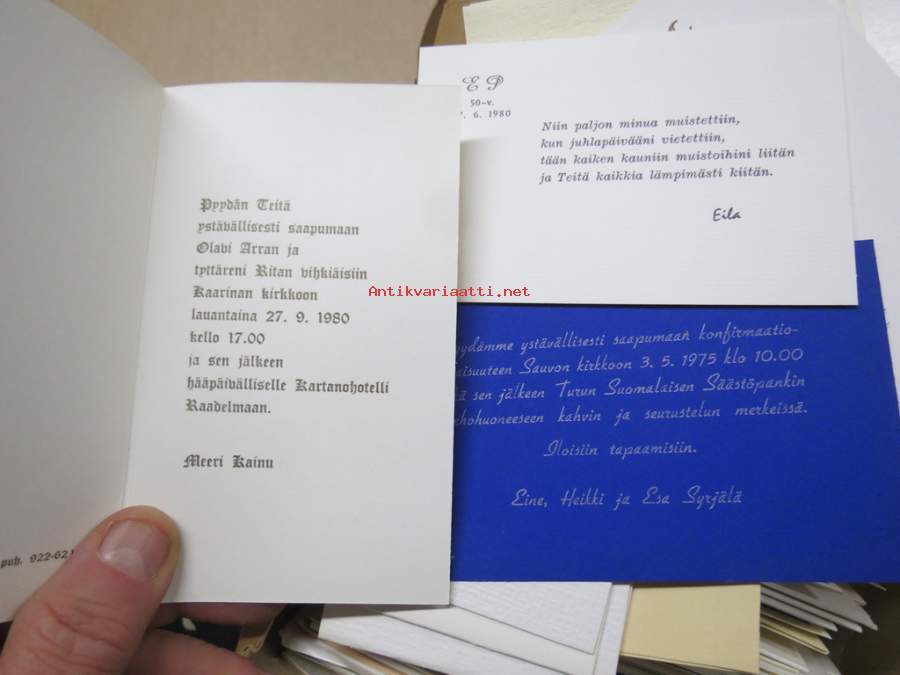 Pyydän Teitä
ystävällisesti saapumaan
Olavi Arran ja
tyttäreni Ritan vihkiäisiin
Kaarinan kirkkoon
lauantaina 27. 9. 1980
kello 17.00
ja sen jälkeen
hääpäivälliselle Kartanohotelli
Raadelmaan.
Meeri Kainu
puh. 922-621
E P
50-v.
7. 6. 1980
Niin paljon minua muistettiin,
kun juhlapäivääni vietettiin,
tään kaiken kauniin muistoihini liitän
ja Teitä kaikkia lämpimästi kiitän.
Eila
Antikvariaatti.net
yydämme ystävällisesti saapumaan konfirmaatio-
aisuuteen Sauvon kirkkoon 3. 5. 1975 klo 10.00
ä sen jälkeen Turun Suomalaisen Säästöpankin
hohuoneeseen kahvin ja seurustelun merkeissä.
Iloisiin tapaamisiin.
Eine, Heikki ja Esa Syrjälä